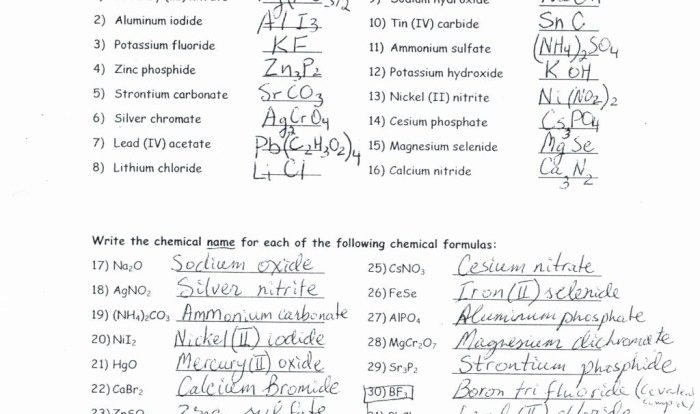 2) Aluminum iodide Al I3
3) Potassium fluoride KF
4) Zinc phosphide Zn3P2
5) Strontium carbonate SrCO3
6) Silver chromate Ag2CrO4
7) Lead (IV) acetate Pb(C2H3O2)4
8) Lithium chloride Li Cl
10) Tin (IV) carbide Sn C
11) Ammonium sulfate (NH4)2SO4
12) Potassium hydroxide K OH
13) Nickel (II) nitrite Ni(NO2)2
14) Cesium phosphate Cs3PO4
15) Magnesium selenide Mg Se
16) Calcium nitride Ca3N2
Write the chemical name for each of the following chemical formulas:
17) Na2O Sodium oxide
18) AgNO2 Silver nitrite
19) (NH4)2CO3 Ammonium carbonate
20) NiI2 Nickel (II) iodide
21) HgO Mercury (II) oxide
22) CaBr2 Calcium Bromide
25) CsNO3 Cesium nitrate
26) FeSe Iron (II) selenide
27) AlPO4 Aluminum phosphate
28) MgCr2O7 Magnesium dichromate
29) Sr3P2 Strontium phosphide
30) BF3 Boron tri fluoride (covalent